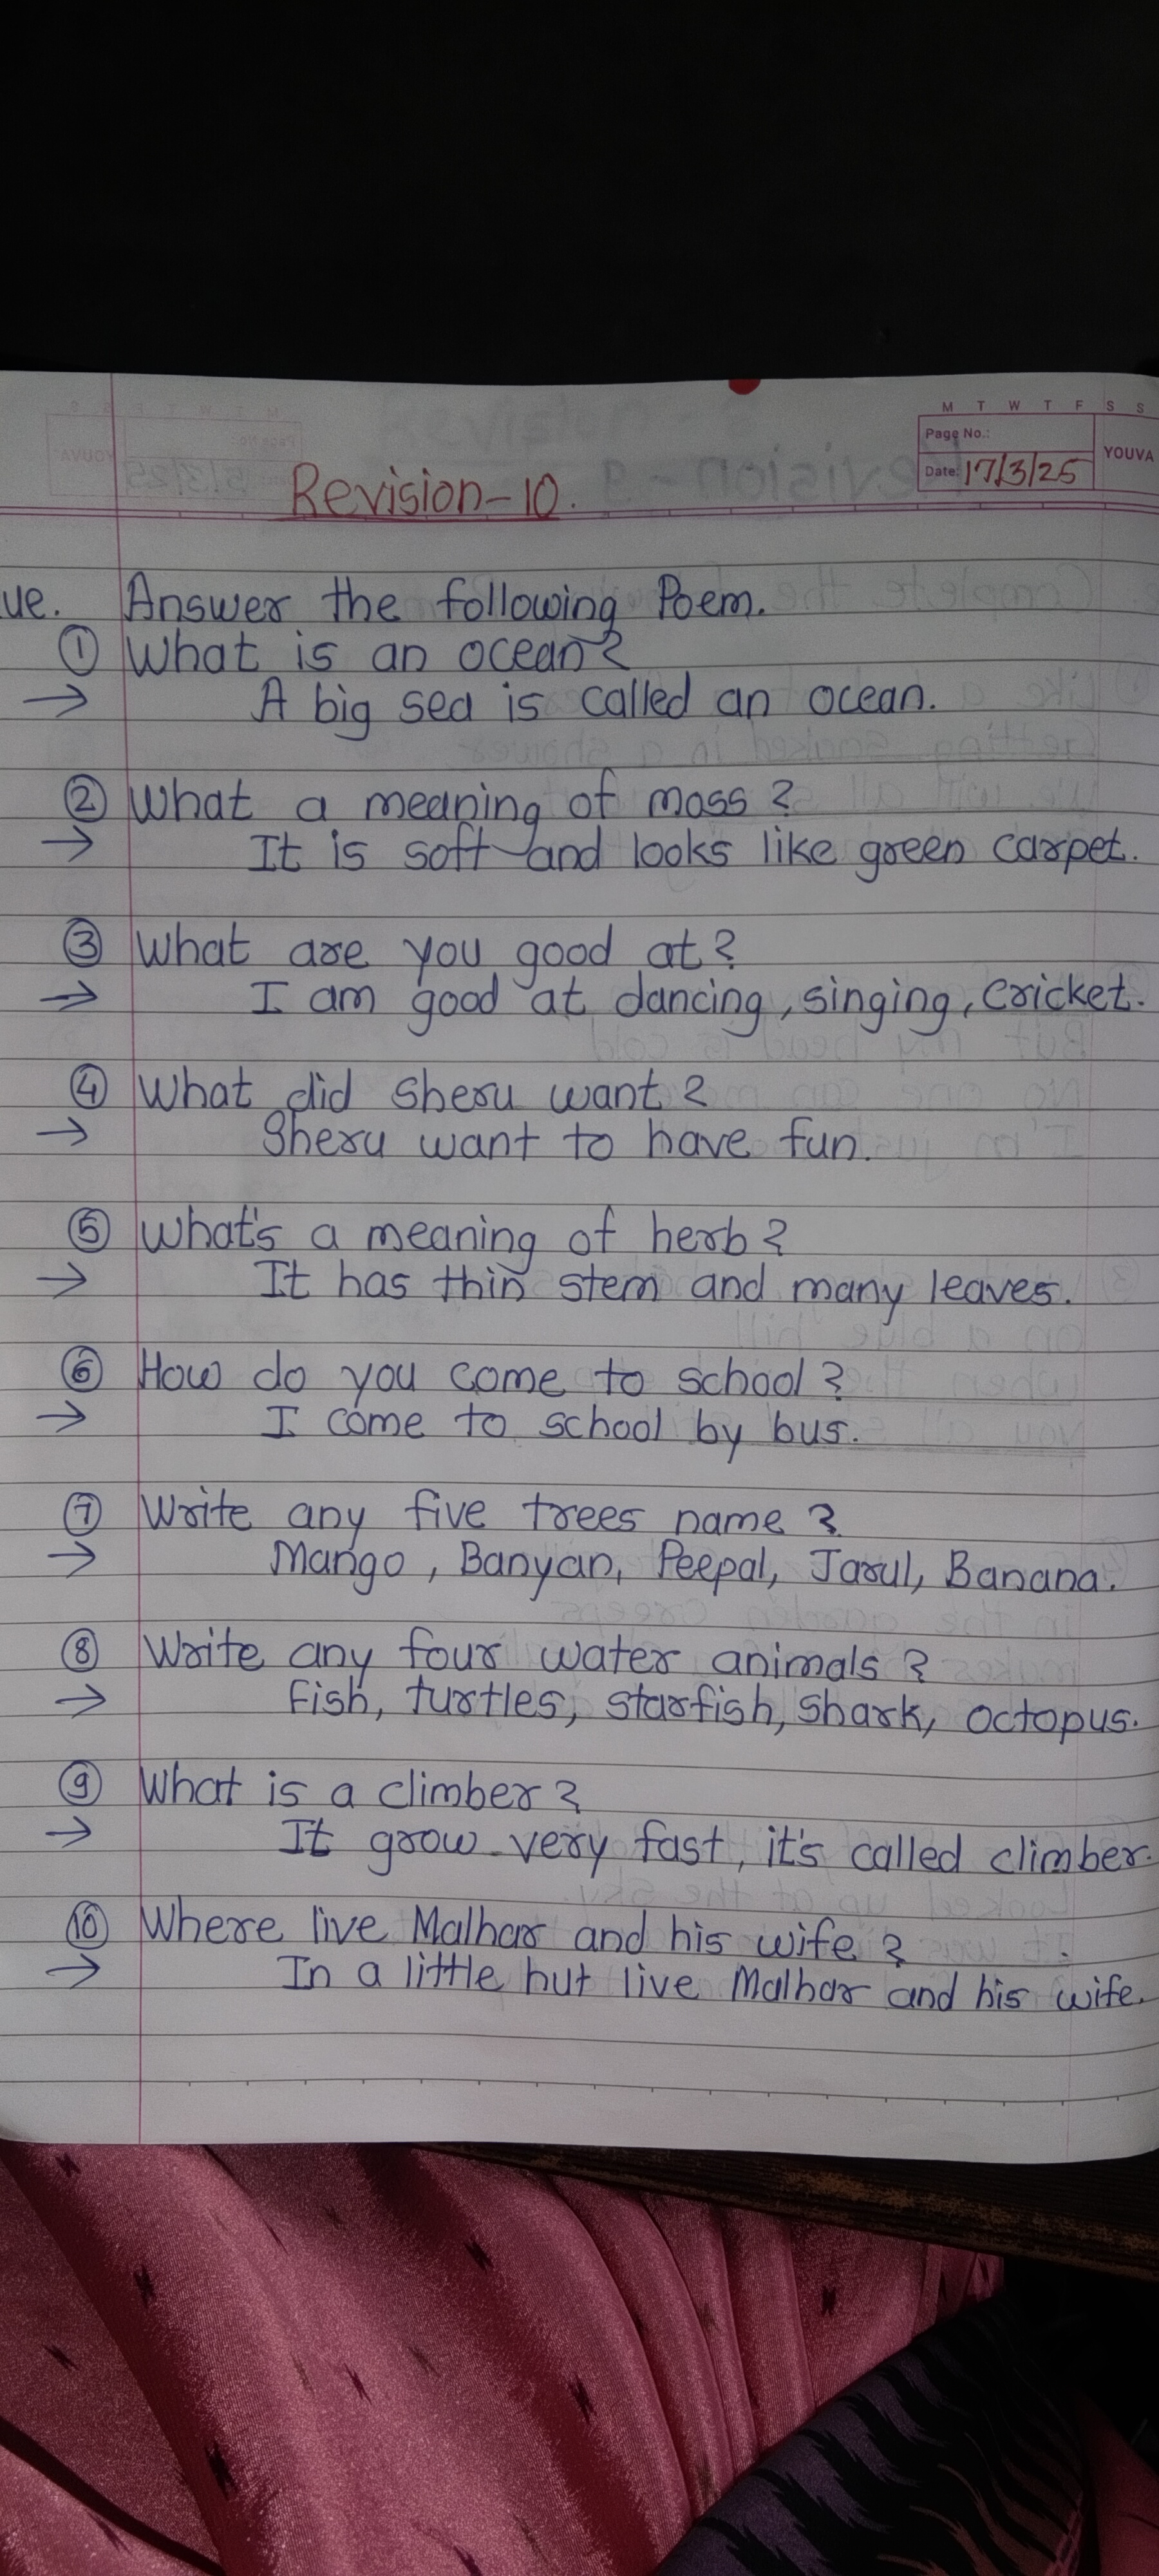 M T W T F S S
Page No.:
YOUVA
Date: 17/3/25
Revision-10.
ue. Answer the following Poem.
① What is an ocean?
→ A big sea is called an ocean.
② What a meaning of moss?
→ It is soft and looks like green carpet.
③ What are you good at?
→ I am good at dancing, singing, cricket.
④ What did sheru want?
→ Sheru want to have fun.
⑤ What's a meaning of herb?
→ It has thin stem and many leaves.
⑥ How do you come to school?
→ I come to school by bus.
⑦ Write any five trees name?
→ Mango, Banyan, Peepal, Jarul, Banana.
⑧ Write any four water animals?
→ Fish, turtles, starfish, shark, octopus.
⑨ What is a climber?
→ It grow very fast, it's called climber.
⑩ Where live Malhar and his wife?
→ In a little hut live Malhar and his wife.